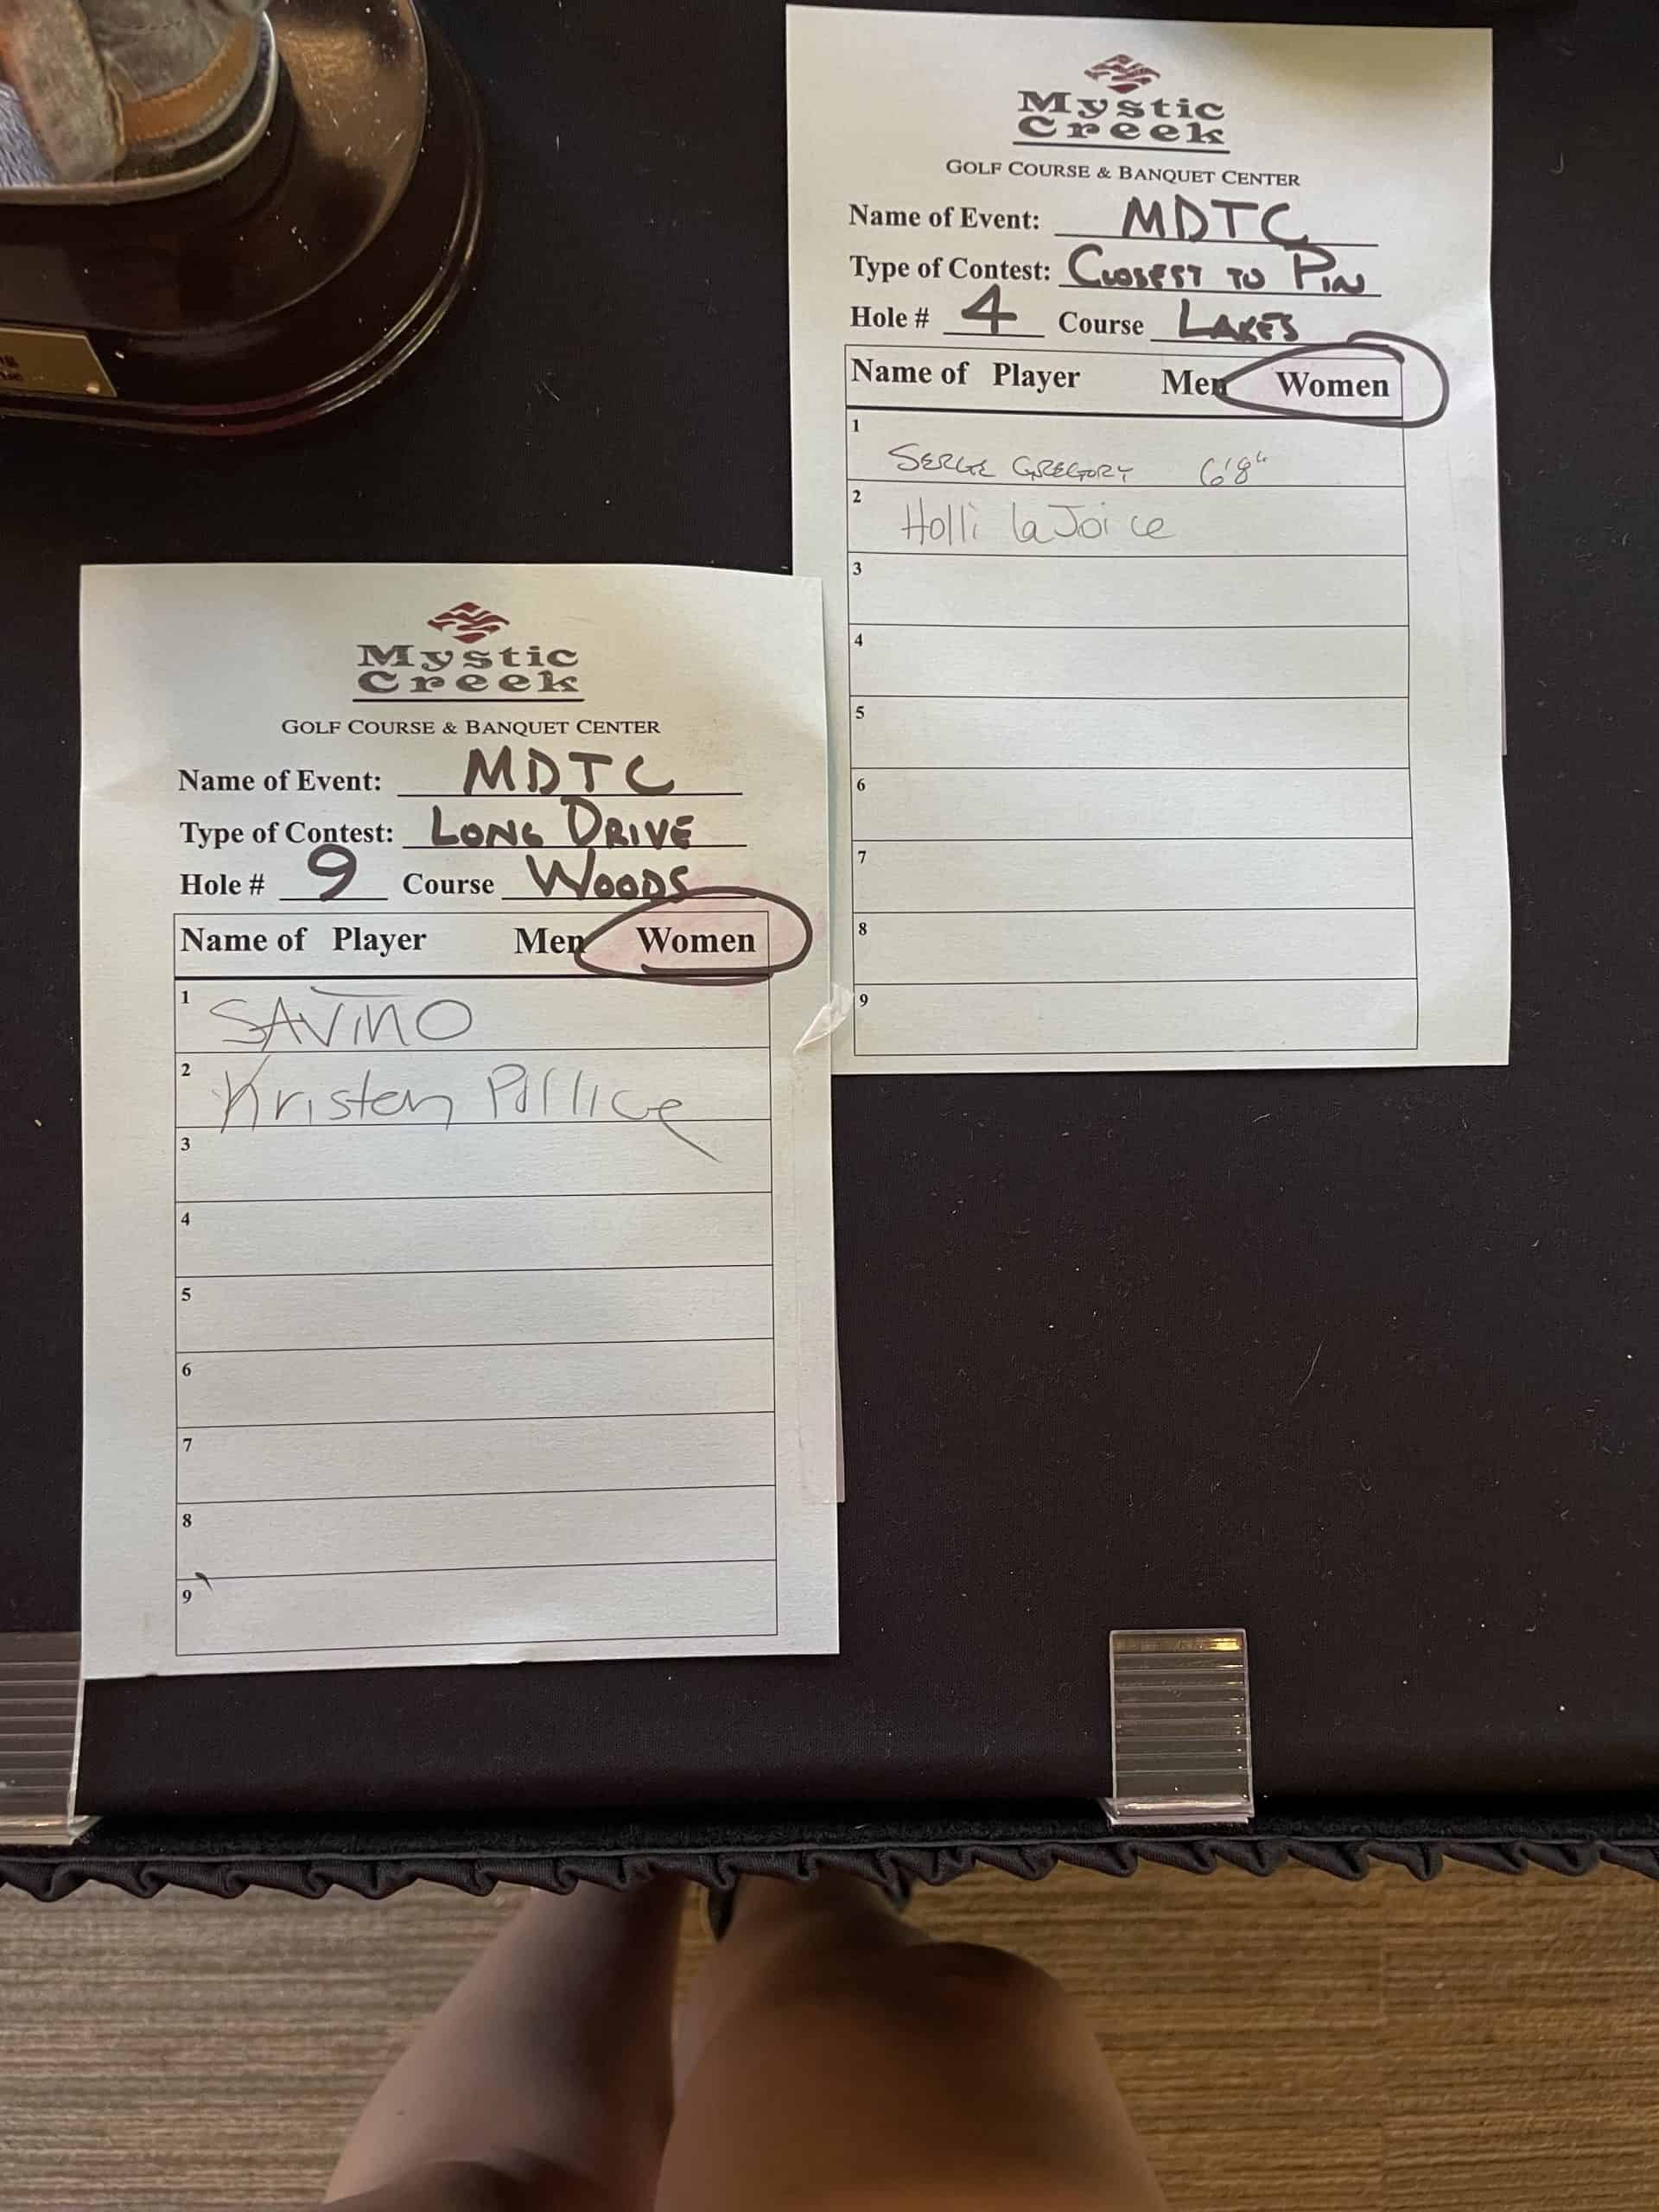 Mystic
Creek
GOLF COURSE & BANQUET CENTER
Name of Event: MDTC
Type of Contest: CLOSEST TO PIN
Hole # 4 Course LAKES
Name of Player Men Women
1 SERGE GREGORY 6'8"
2 Holli laJoice
3
4
5
6
7
8
9
Mystic
Creek
GOLF COURSE & BANQUET CENTER
Name of Event: MDTC
Type of Contest: LONG DRIVE
Hole # 9 Course WOODS
Name of Player Men Women
1 SAVINO
2 Kristen
3
4
5
6
7
8
9